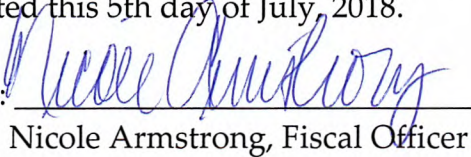 ted this 5th day of July, 2018.
: Nicole Armstrong
Nicole Armstrong, Fiscal Officer